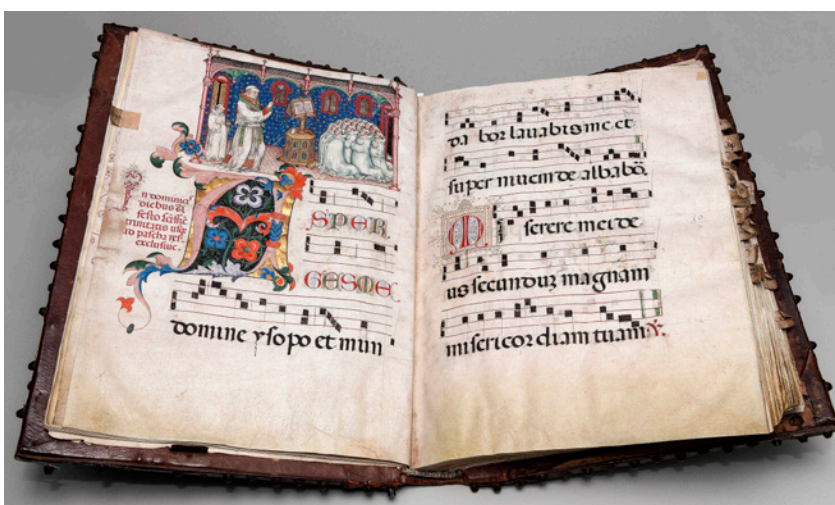 In dominicis
diebus a
festo
trinitatis usq
ad pascha res
exclusiue.
ASPER
GESME
domine ysopo et mun
da bor lauabis me et
super niuem de albabõ.
Miserere mei de
us secunduz magnam
misericordiam tuam ℣.